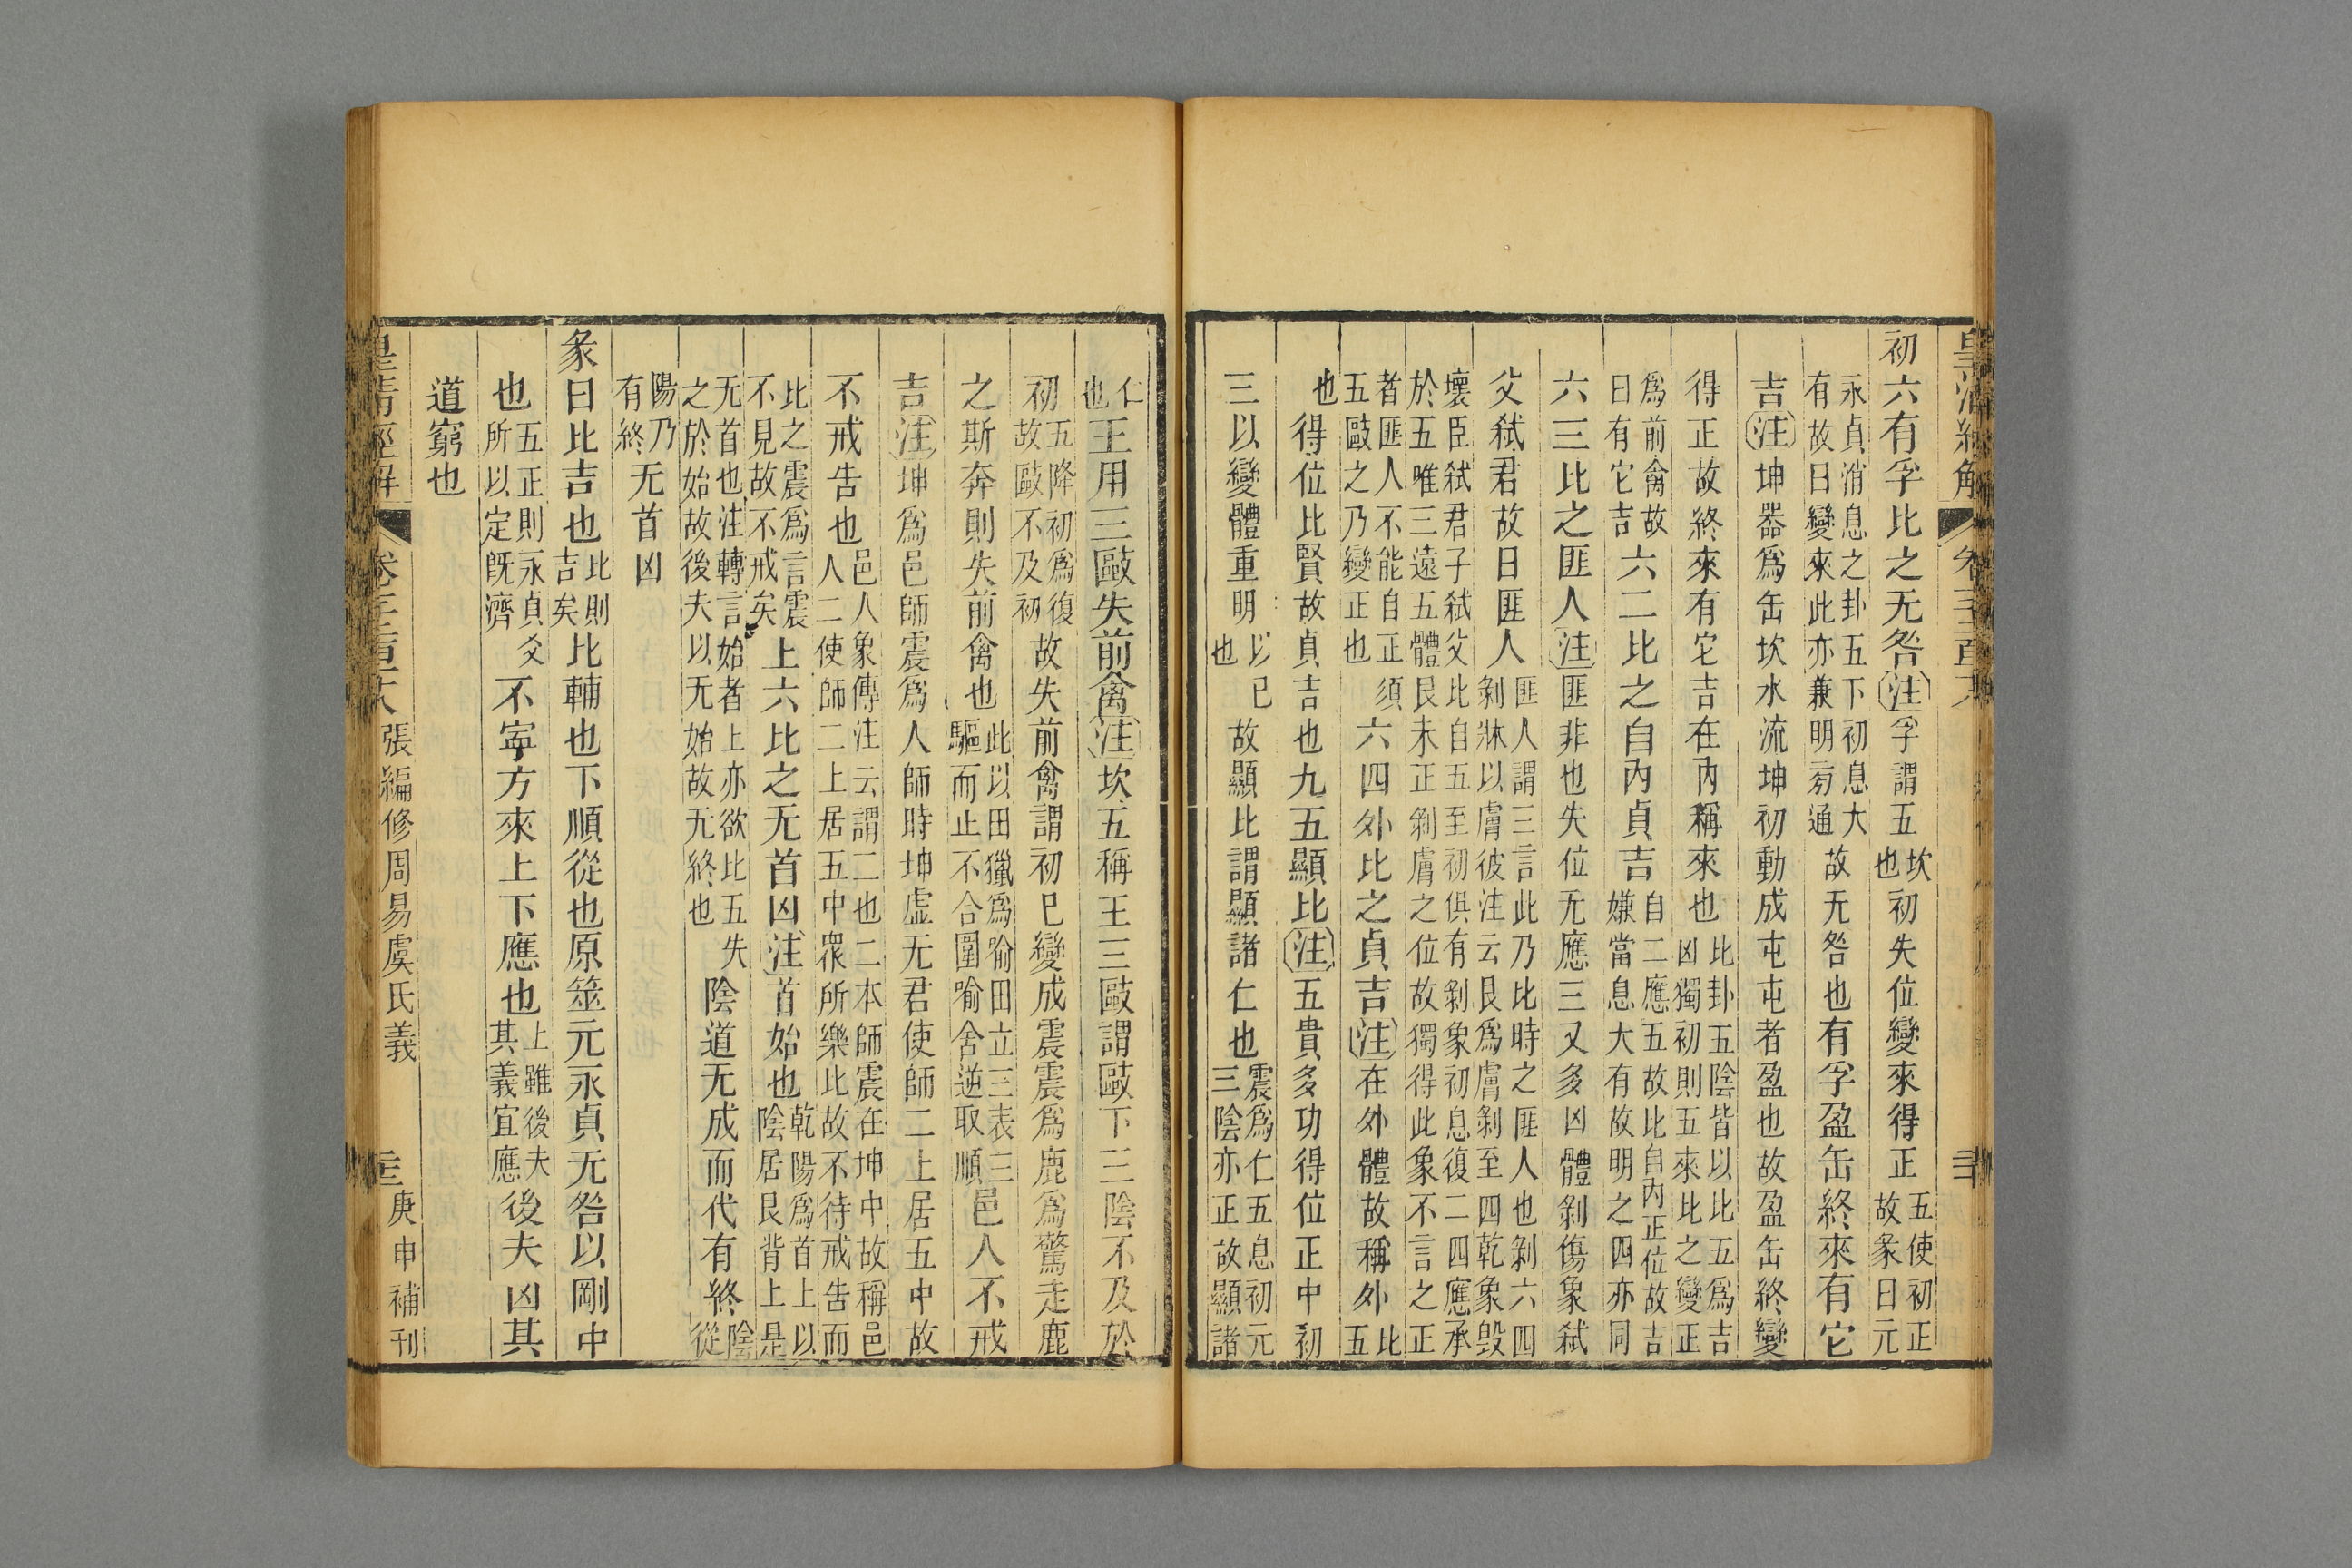 皇清經解
初六有孚比之无咎注孚謂五坎也初失位變來得正五使初正故彖曰元
永貞消息之卦五下初息大有故曰變來此亦兼明旁通故无咎也有孚盈缶終來有它
吉注坤器爲缶坎水流坤初動成屯屯者盈也故盈缶終變
得正故終來有它吉在內稱來也比卦五陰皆以比五爲吉凶獨初則五來比之變正
爲前禽故曰有它吉六二比之自內貞吉自二應五故比自內正位故吉嫌當息大有故明之四亦同
六三比之匪人注匪非也失位无應三又多凶體剝傷象弒
父弒君故曰匪人匪人謂三言此乃比時之匪人也剝六四剝牀以膚彼注云艮爲膚剝至四乾象毀
壞臣弒君子弒父比自五至初俱有剝象初息復二四應承於五唯三遠五體艮未正剝膚之位故獨得此象不言之正
者匪人不能自正須五敺之乃變正也六四外比之貞吉注在外體故稱外比五
也得位比賢故貞吉也九五顯比注五貴多功得位正中初
三以變體重明以已也故顯比謂顯諸仁也震爲仁五息初元三陰亦正故顯諸
仁也王用三敺失前禽注坎五稱王三敺謂敺下三陰不及於
初五降初爲復故敺不及初故失前禽謂初已變成震震爲鹿爲驚走鹿
之斯奔則失前禽也此以田獵爲喻田立三表三驅而止不合圍喻舍逆取順邑人不戒
吉注坤爲邑師震爲人師時坤虛无君使師二上居五中故
不戒吿也邑人象傳注云謂二也二本師震在坤中故稱邑人二使師二上居五中衆所樂比故不待戒吿而
比之震爲言震不見故不戒矣上六比之无首凶注首始也乾陽爲首上以陰居艮背上是
无首也注轉言始者上亦欲比五失之於始故後夫以无始故无終也陰道无成而代有終陰從
陽乃有終无首凶
彖曰比吉也比則吉矣比輔也下順從也原筮元永貞无咎以剛中
也五正則永貞爻所以定旣濟不寧方來上下應也上雖後夫其義宜應後夫凶其
道窮也
皇清經解 張編修周易虞氏義 庚申補刊